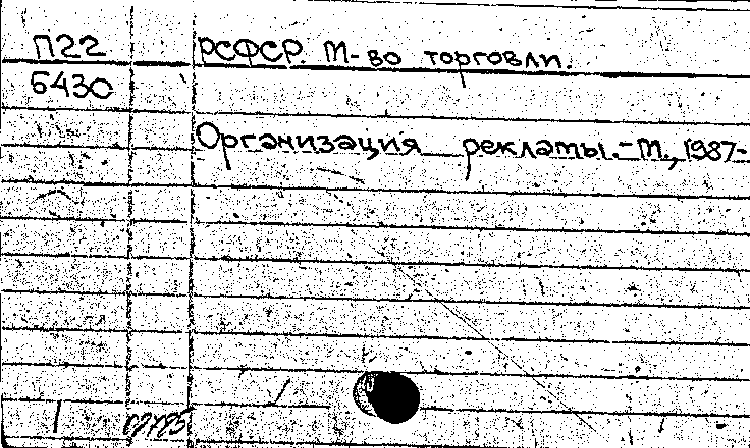 П22 РСФСР. М-во торговли.
6430
Организация рекламы.-М., 1987-